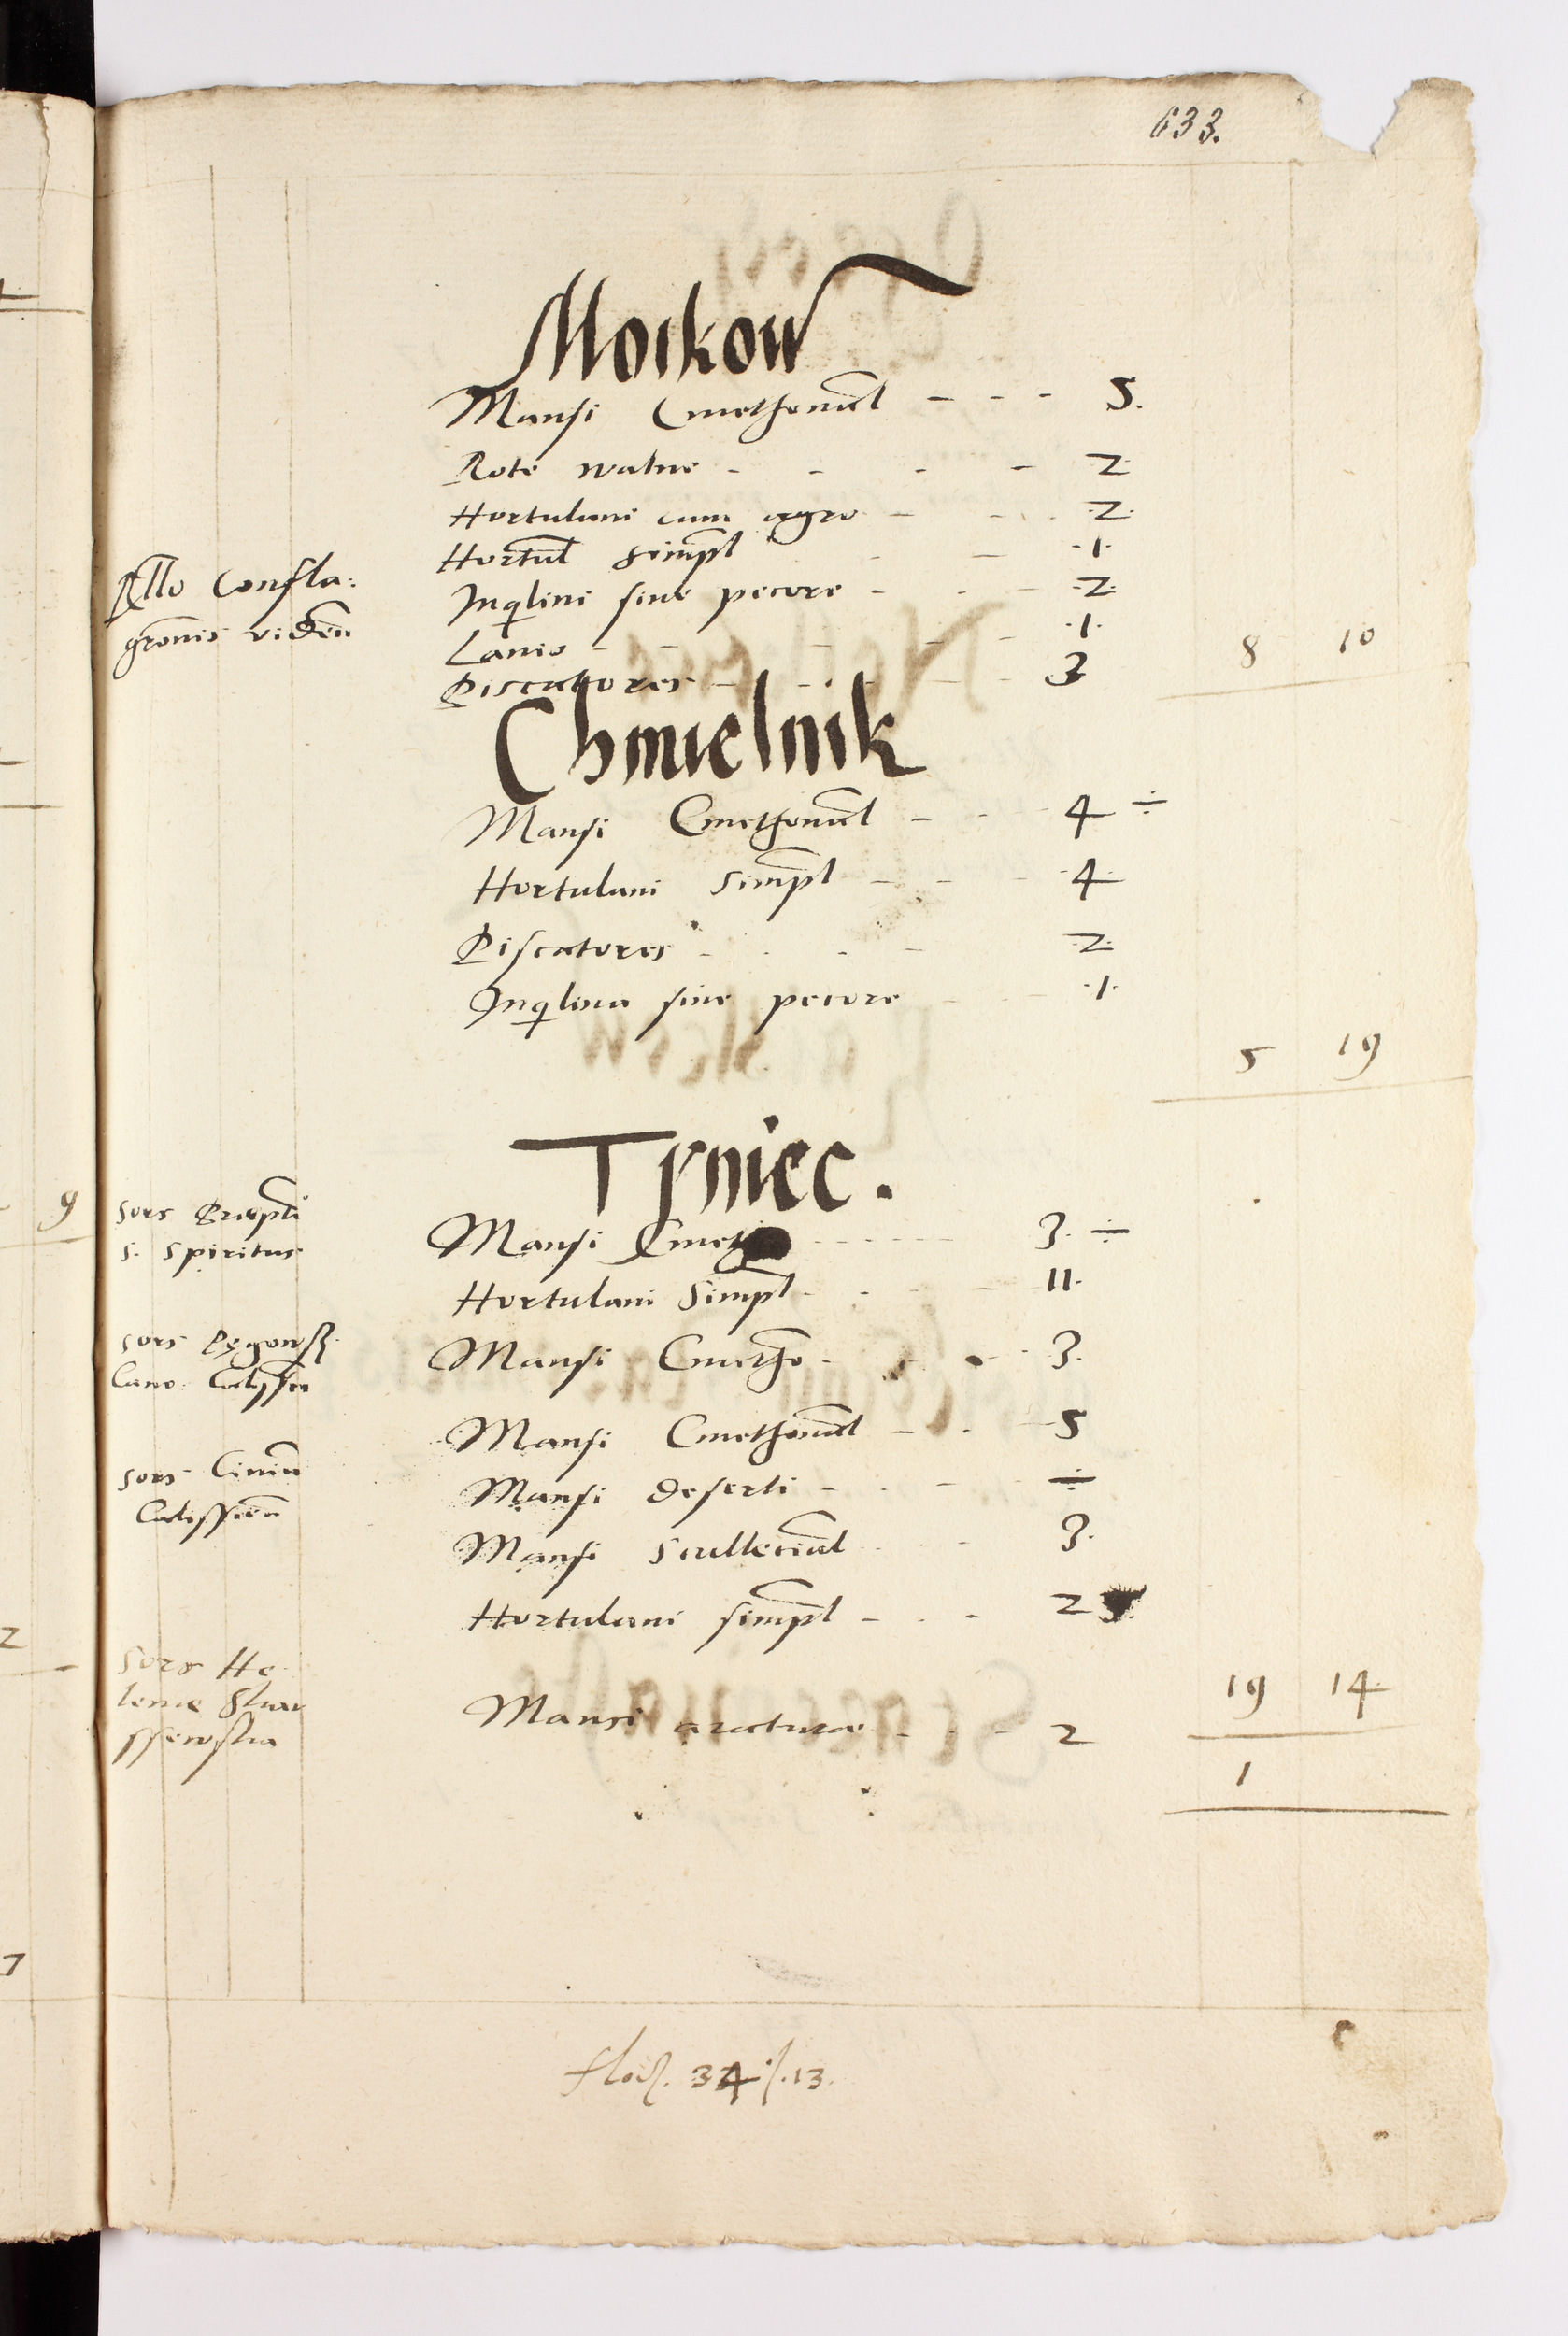 633.
Moikow
Mansi Cmethonal - - - 5.
Rote walne - - - - 2
Hortulani cum agro - - . 2.
Hortul simpl - - .1.
Inqlini sine pecore - - - 2.
Rllo Confla:
gronis viden
Lanio - - - - - .1.
Piscatores - - - - 3
8 10
Chmielnik
Mansi Cmethonal - - - 4 ÷
Hortulani simpl - - - 4
Piscatores - . - - 2
Inqlina sine pecore - - .1.
5 19
Tyniec.
sors Praepti
s. spiritus
Mansi Cmet - - - - - - 3. ÷
Hortulani simpl - - - 11.
sors
Cano: Calissien
Mansi Cmetho - . - . 3.
Mansi Cmethonal - . - 5
sors Civiu
Calissien
Mansi deserti - . - - ÷
Mansi scultecial . . - 3.
Hortulani simpl - . - 2
sors He
lenae
Mansi araturae - - - 2
19 14
1
34 /.13.
9
2
7